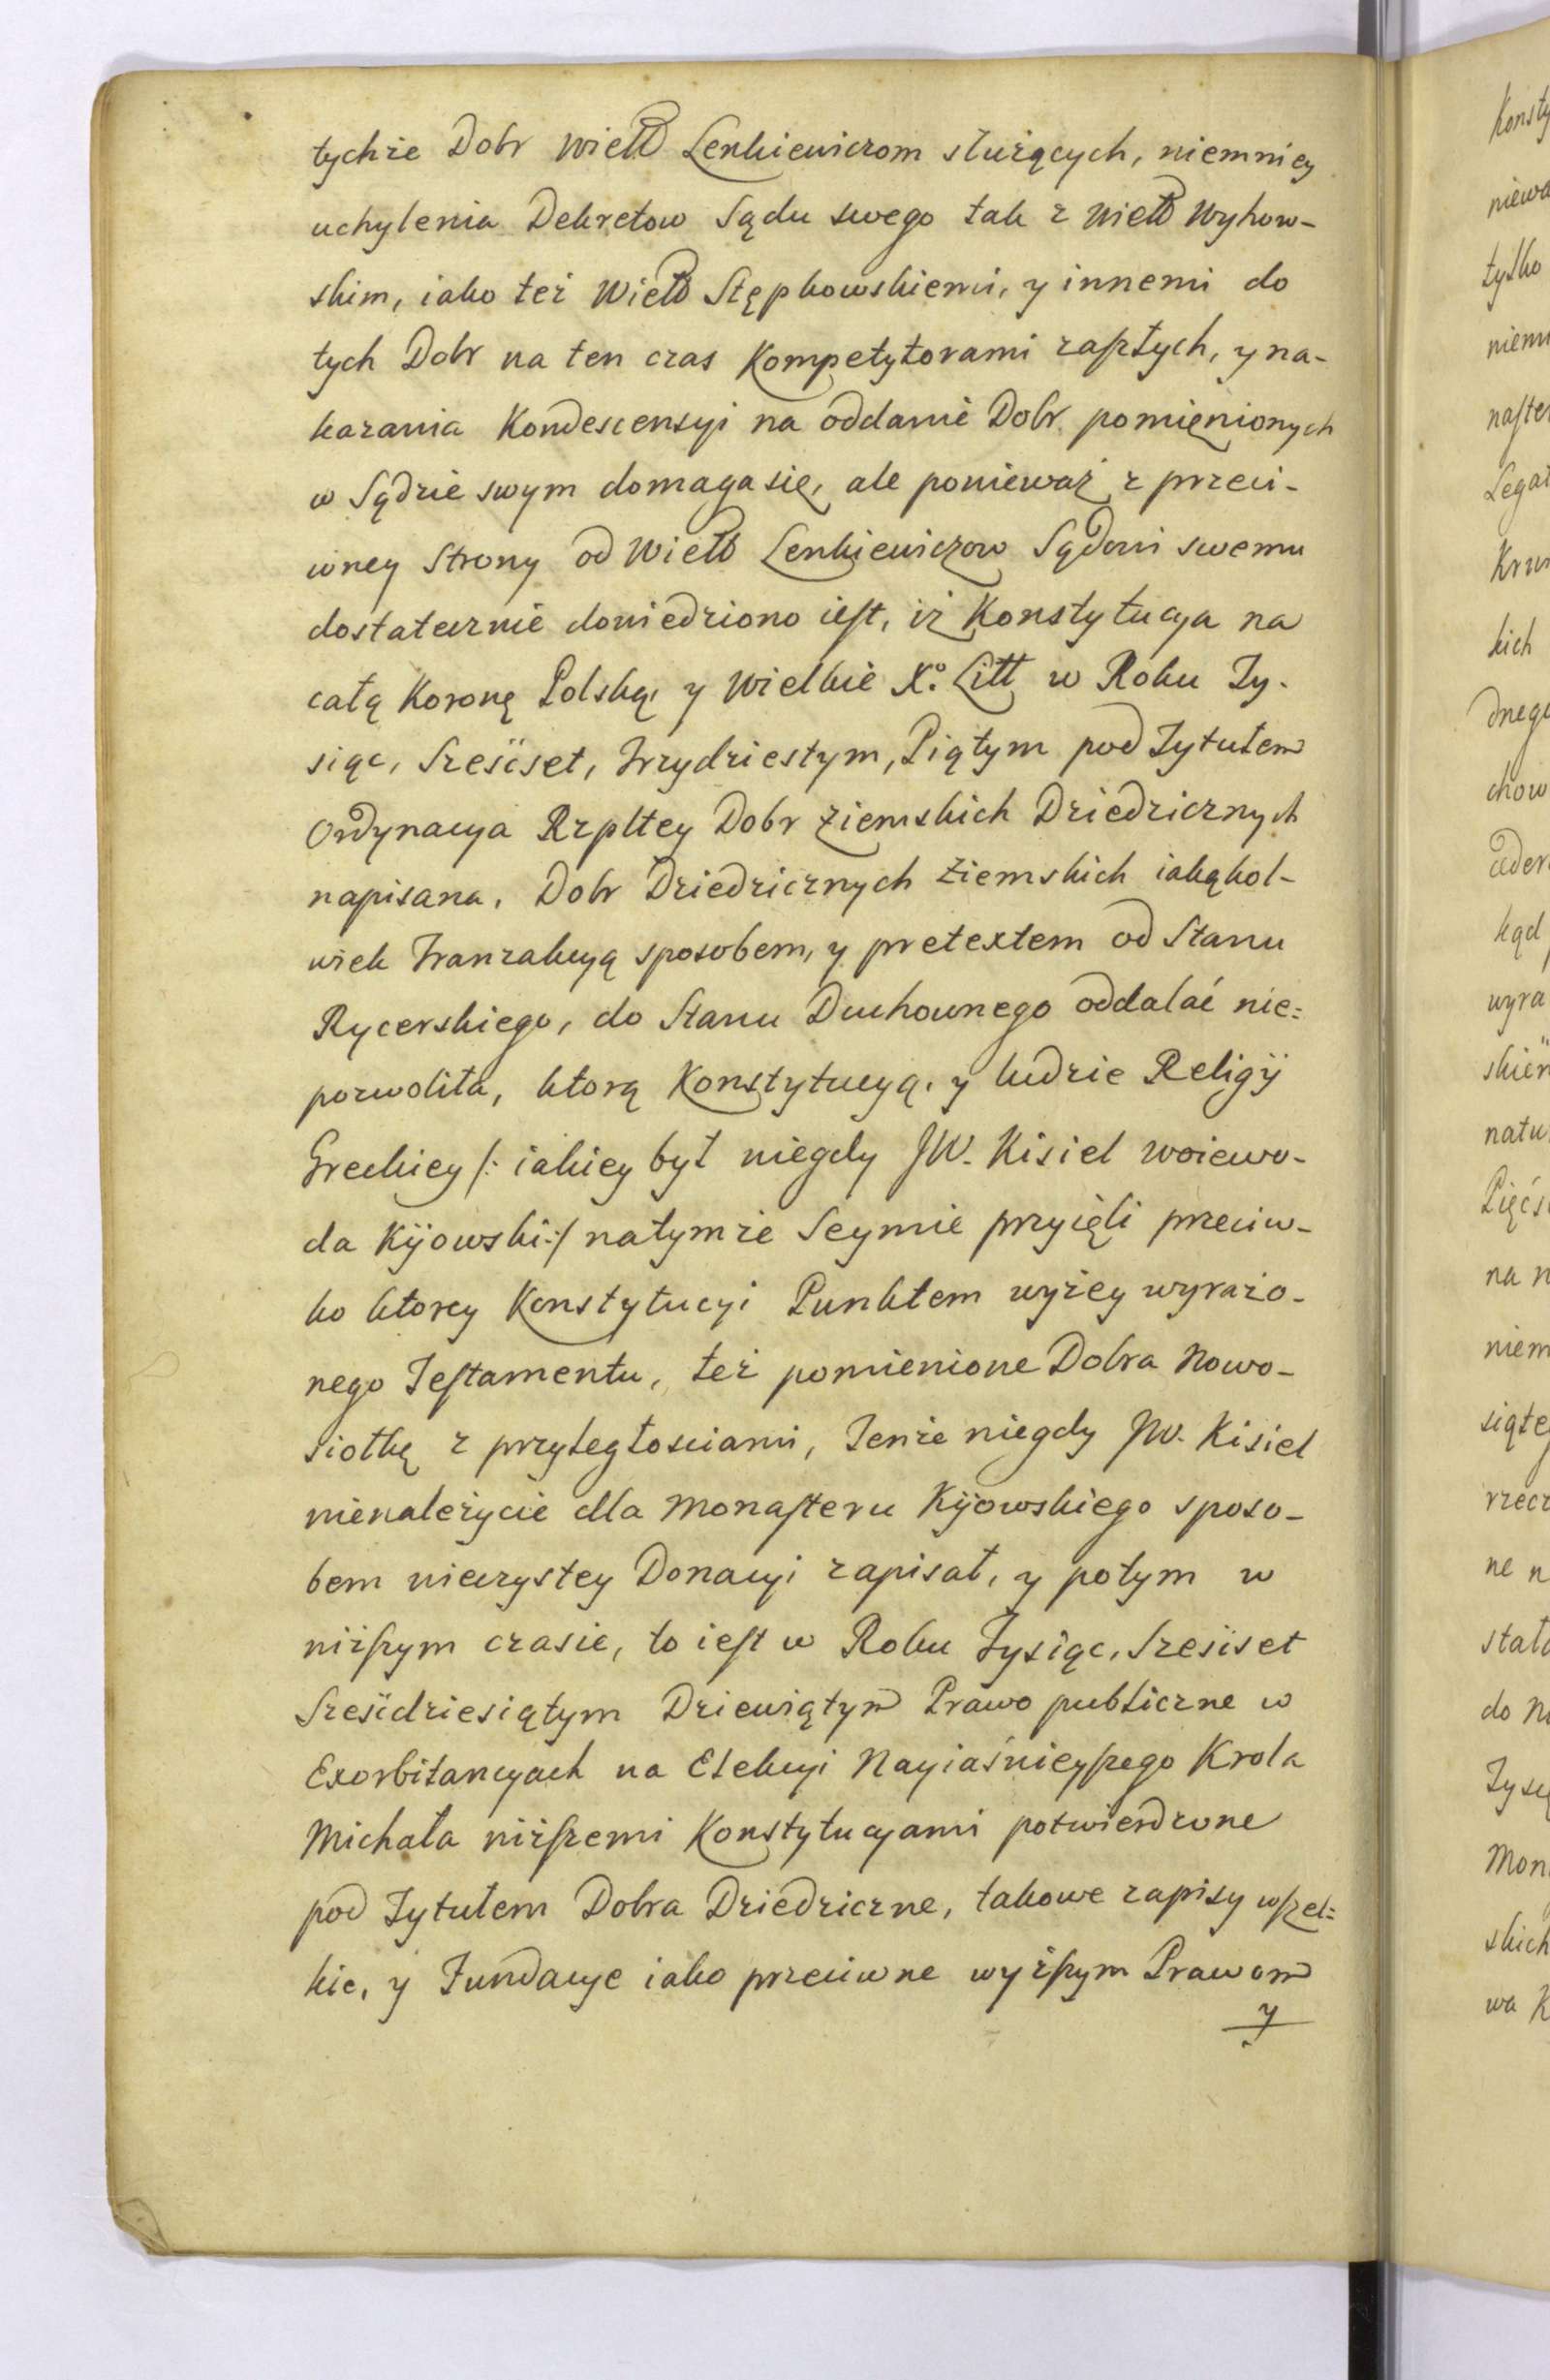 tychże Dobr Wielb Lenkiewiczom służących, niemniey
uchylenia Dekretow Sądu swego tak z Wielb Wyhow-
skim, iako też Wielb Stępkowskiemi, y innemi do
tych Dobr na ten czas Kompetytorami zaszłych, y na-
kazania Kondescensyi na oddanie Dobr pomięnionych
w Sądzie swym domaga się, ale ponieważ z przeci-
wney Strony od Wielb Lenkiewiczow Sądowi swemu
dostatecznie dowiedziono iest, iż Konstytucya na
całą Koronę Polską, y Wielkie X.º Litt w Roku Ty-
siąc, Sześćset, Trzydziestym, Piątym pod Tytułem
Ordynacya Rzpltey Dobr Ziemskich Dziedzicznych
napisana, Dobr Dziedzicznych Ziemskich iakąkol-
wiek Tranzakcyą sposobem, y pretextem od Stanu
Rycerskiego, do Stanu Duchownego oddalać nie=
pozwoliła, ktorą Konstytucyą, y ludzie Religÿ
Greckiey /: iakiey był niegdy JW. Kisiel Woiewo-
da Kijowski :/ natymże Seymie przyięli przeciw-
ko ktorey Konstytucyi Punktem wyżey wyrażo-
nego Testamentu, też pomienione Dobra Nowo-
siołkę z przyległosciami, Tenże niegdy JW. Kisiel
nienależycie dla Monasteru Kijowskiego sposo-
bem wieczystey Donacyi zapisał, y potym w
niższym czasie, to iest w Roku Tysiąc, Sześćset
Sześćdziesiątym Dziewiątym Prawo publiczne w
Exorbitancyach na Elekcyi Nayiaśnieyszego Krola
Michała niższemi Konstytucyami potwierdzone
pod Tytułem Dobra Dziedziczne, takowe zapisy wszel=
kie, y Fundacye iako przeciwne wyższym Prawom
y